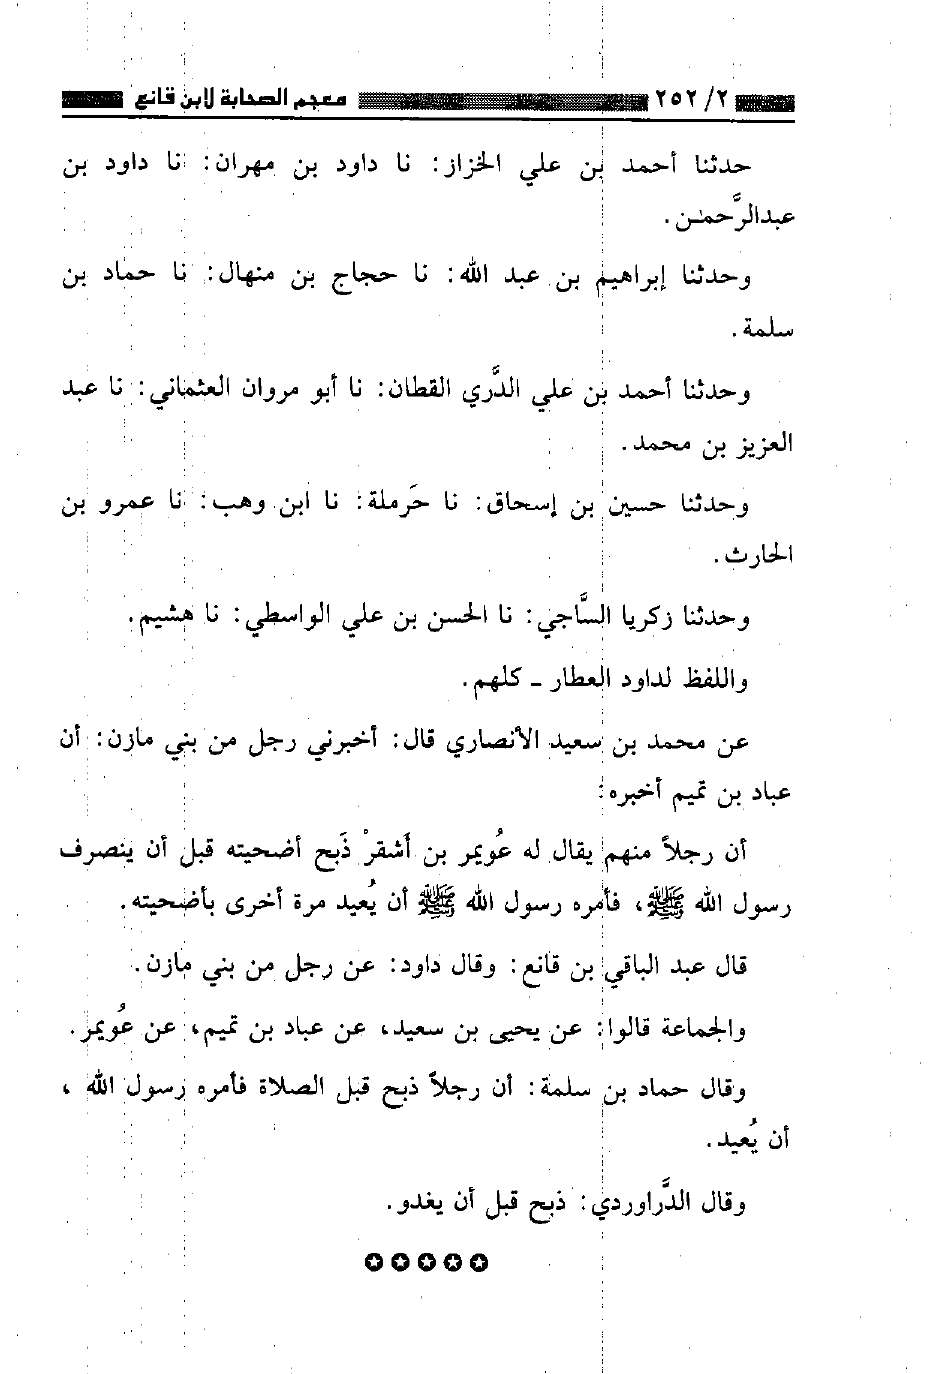 ٢/ ٢٥٢ معجم الصحابة لابن قانع
حدثنا أحمد بن علي الخزاز: نا داود بن مهران: نا داود بن
عبدالرَّحمٰن.
وحدثنا إبراهيم بن عبد الله: نا حجاج بن منهال: نا حماد بن
سلمة.
وحدثنا أحمد بن علي الدَّري القطان: نا أبو مروان العثماني: نا عبد
العزيز بن محمد.
وحدثنا حسين بن إسحاق: نا حَرملة: نا ابن وهب: نا عمرو بن
الحارث.
وحدثنا زكريا السَّاجي: نا الحسن بن علي الواسطي: نا هشيم.
واللفظ لداود العطار ـ كلهم.
عن محمد بن سعيد الأنصاري قال: أخبرني رجل من بني مازن: أن
عباد بن تميم أخبره:
أن رجلاً منهم يقال له عُويمر بن أَشقرْ ذَبح أضحيته قبل أن ينصرف
رسول الله ﷺ، فأمره رسول الله ﷺ أن يُعيد مرة أخرى بأضحيته.
قال عبد الباقي بن قانع: وقال داود: عن رجل من بني مازن.
والجماعة قالوا: عن يحيى بن سعيد، عن عباد بن تميم، عن عُويمر.
وقال حماد بن سلمة: أن رجلاً ذبح قبل الصلاة فأمره رسول الله ،
أن يُعيد.
وقال الدَّراوردي: ذبح قبل أن يغدو.